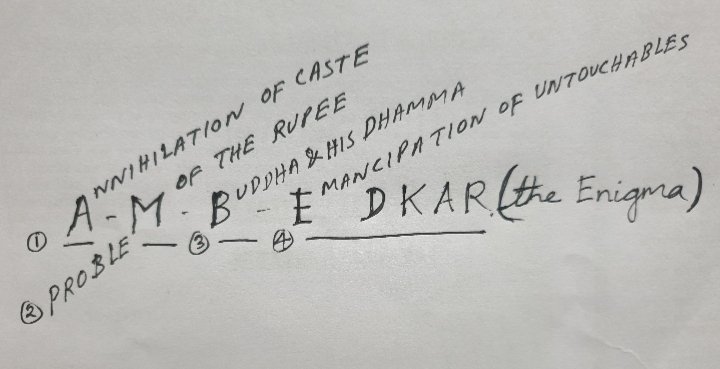 ① ANNIHILATION OF CASTE
② PROBLEM OF THE RUPEE
③ BUDDHA & HIS DHAMMA
④ EMANCIPATION OF UNTOUCHABLES
A-M-B-E DKAR (the Enigma)